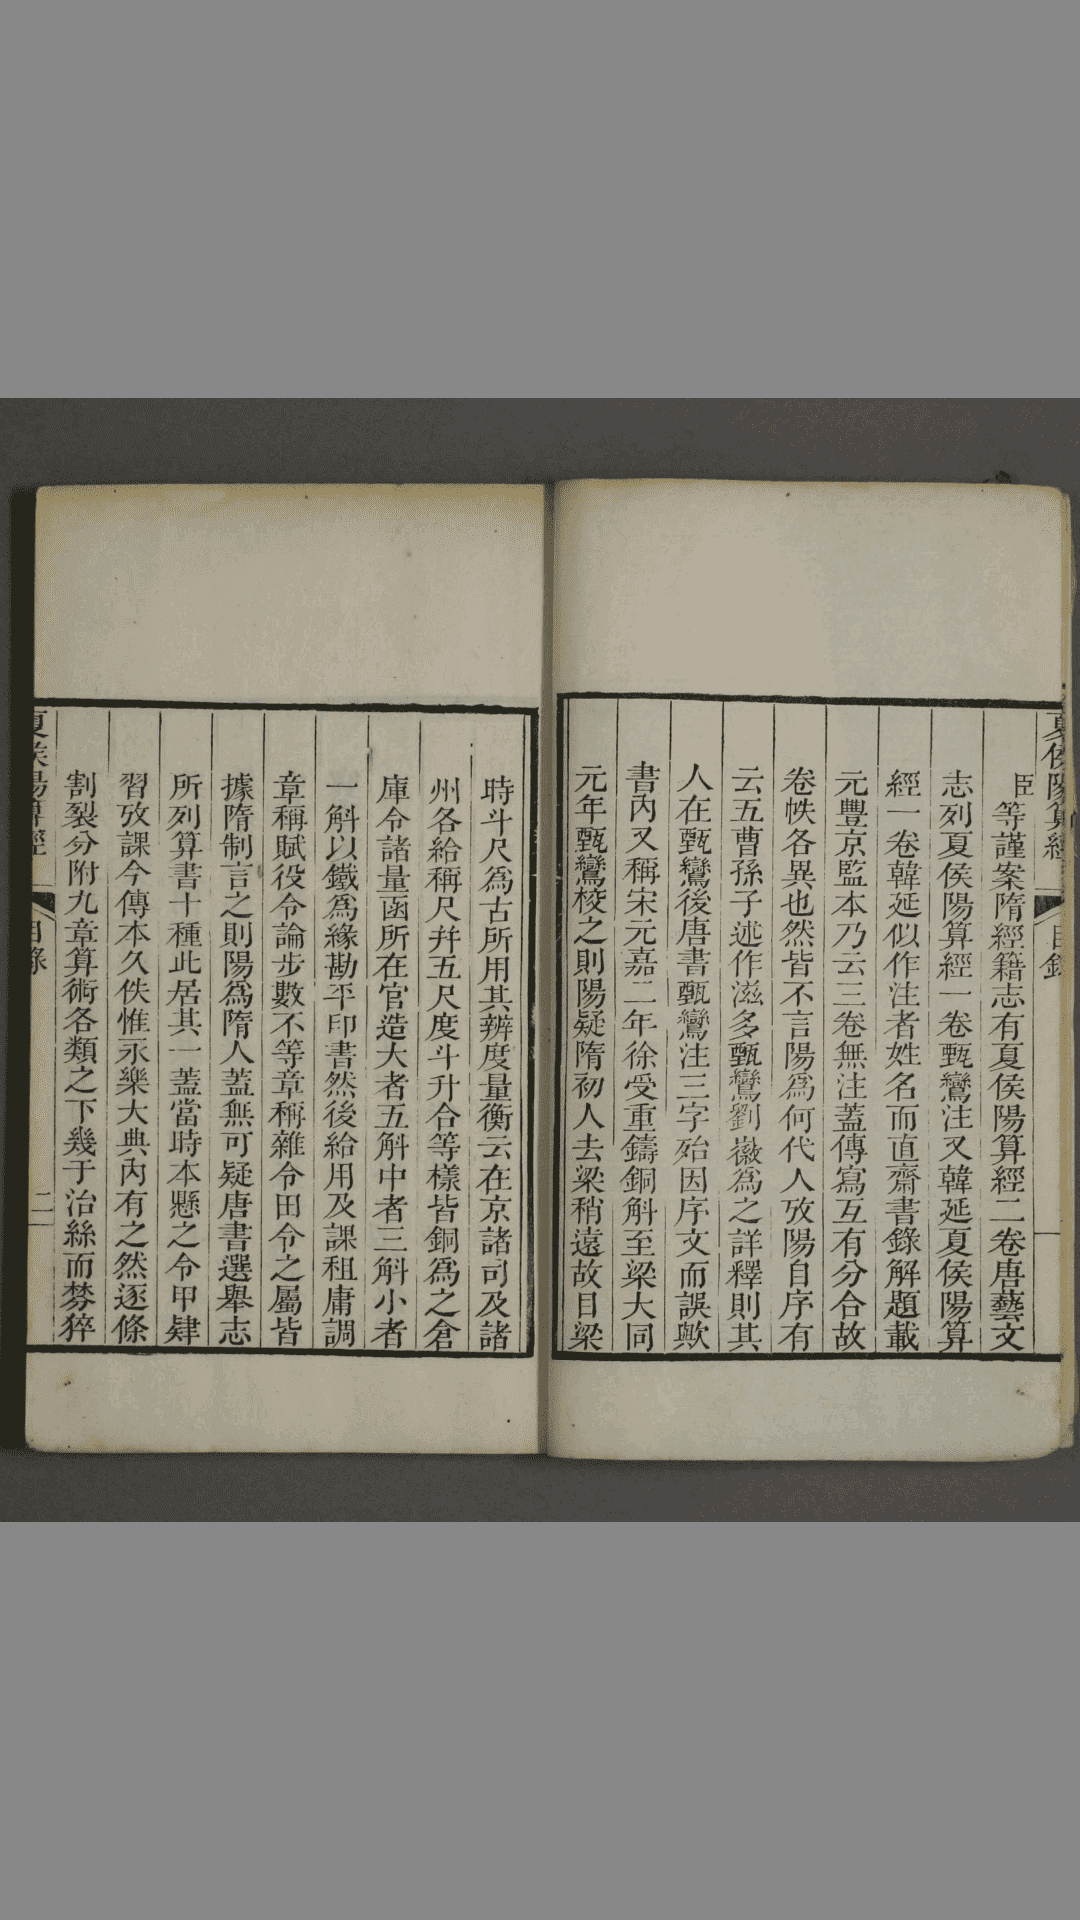 夏侯陽算經
目錄
臣等謹案隋經籍志有夏侯陽算經二卷唐藝文
志列夏侯陽算經一卷甄鸞注又韓延夏侯陽算
經一卷韓延似作注者姓名而直齋書錄解題載
元豐京監本乃云三卷無注蓋傳寫互有分合故
卷帙各異也然皆不言陽為何代人攷陽自序有
云五曹孫子述作滋多甄鸞劉徽為之詳釋則其
人在甄鸞後唐書甄鸞注三字殆因序文而誤歟
書內又稱宋元嘉二年徐受重鑄銅斛至梁大同
元年甄鸞校之則陽疑隋初人去梁稍遠故目梁
時斗尺為古所用其辨度量衡云在京諸司及諸
州各給稱尺幷五尺度斗升合等樣皆銅為之倉
庫令諸量函所在官造大者五斛中者三斛小者
一斛以鐵為緣勘平印書然後給用及課租庸調
章稱賦役令論步數不等章稱雜令田令之屬皆
據隋制言之則陽為隋人蓋無可疑唐書選舉志
所列算書十種此居其一蓋當時本懸之令甲肄
習攷課今傳本久佚惟永樂大典內有之然逐條
割裂分附九章算術各類之下幾于治絲而棼猝
夏侯陽算經
目錄
二